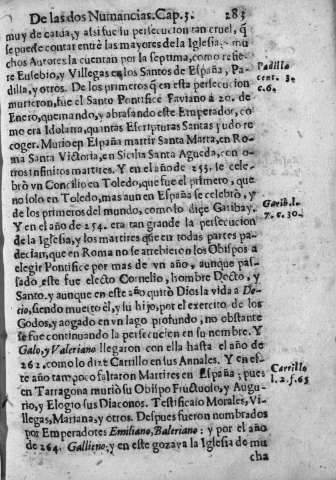 De las dos Numancias. Cap. 5. 283
muy de caida, y assi fue su persecucion tan cruel, q̃
se puede contar entre las mayores de la Iglesia, mu-
chos Autores la cuentan por la septima, como refie-
re Eusebio, y Villegas en los Santos de España, Pa-
dilla, y otros. De los primeros q̃ en esta persecucion
murieron, fue el Santo Pontifice Faviano à 20. de
Enero, quemando, y abrasando este Emperador, co
mo era Idolatra, quantas Escripturas Santas pudo re
coger. Murio en España martir Santa Marta, en Ro-
ma Santa Victoria, en Sicilia Santa Agueda, con o-
tros infinitos martires. Y en el año de 253. se cele-
brò vn Concilio en Toledo, que fue el primero, que
no solo en Toledo, mas aun en España se celebrò, y
de los primeros del mundo, como lo dize Garibay.
Y en el año de 254. era tan grande la persecucion
de la Iglesia, y los martires que en todas partes pa-
decian, que en Roma no se atrebieron los Obispos a
elegir Pontifice por mas de vn año, aunque pas-
sado, este fue electo Cornelio, hombre Docto, y
Santo, y aunque en este año quitò Dios la vida a De-
cio, siendo muerto èl, y su hijo, por el exercito de los
Godos, y aogado en vn lago profundo, no obstante
se fue continuando la persecucion en su nombre. Y
Galo, y Valeriano llegaron con ella hasta el año de
262. como lo dize Carrillo en sus Annales. Y en es-
te año tampoco faltaron Martires en España; pues
en Tarragona muriò su Obispo Fructuoso, y Augu-
rio, y Elogio sus Diaconos. Testificalo Morales, Vi-
llegas, Mariana, y otros. Despues fueron nombrados
por Emperadores Emiliano, Baleriano: y por el año
de 264. Gallieno; y en este gozava la Iglesia de mu
cha
Padilla
cent. 3.
c. 6.
Garib. l.
7. c. 30.
Carrillo
l. 2. f. 65